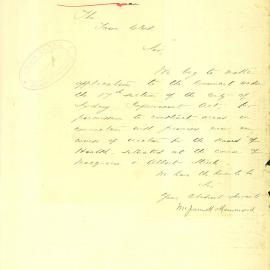 The
Town Clerk
Sir
We beg to make
application to the Council under
the 17th section of the City of
Sydney Improvement Act, for
permission to construct areas in
connection with premises now in
course of erection for the Board of
Health, situated at the corner of
Macquarie & Albert Streets
We have the honor to be
Sir
Your obedient servants